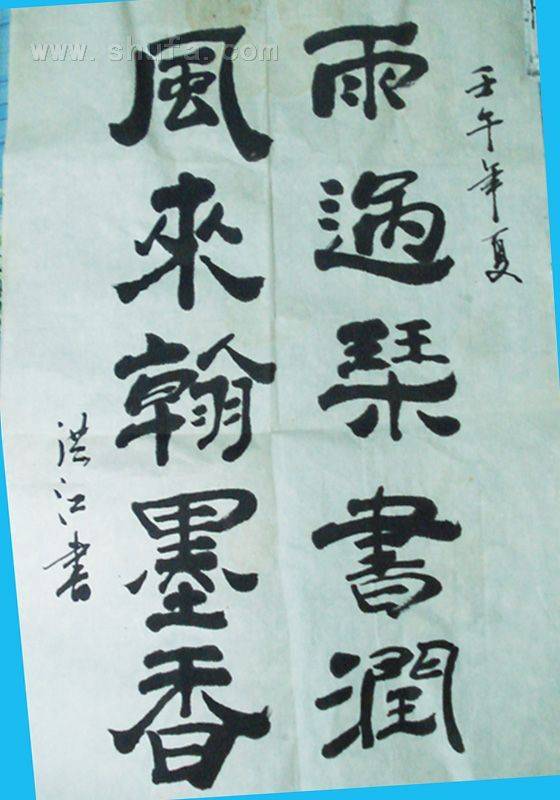 壬午年夏
雨過琹書潤
風來翰墨香
洪江書
www.shufa.com